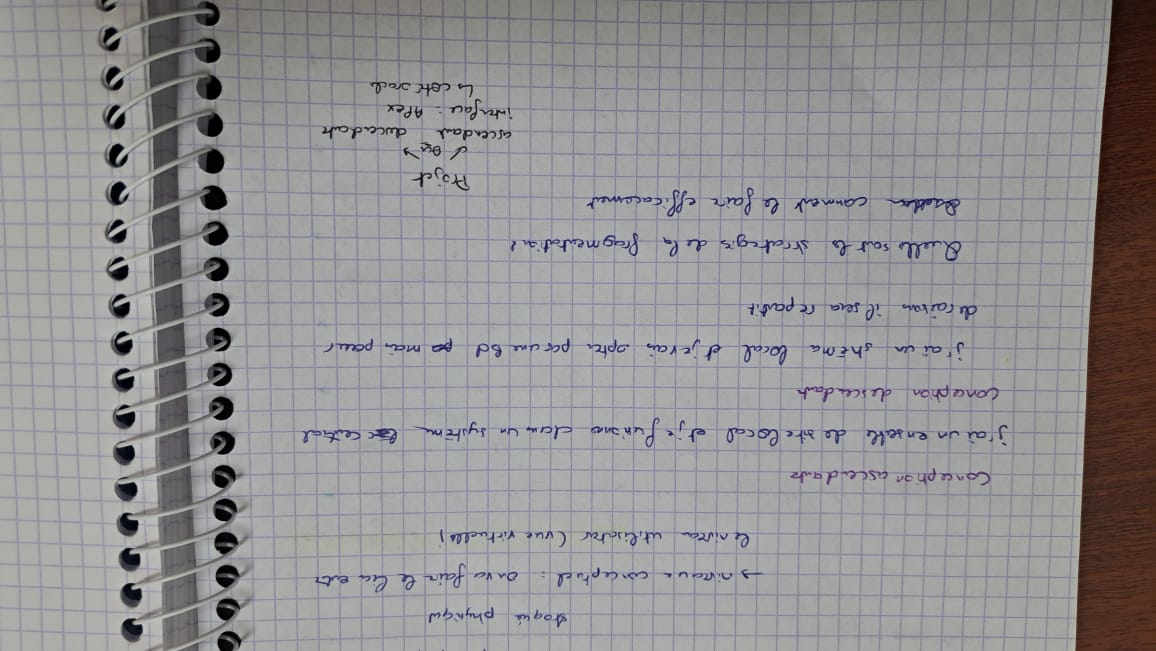 stoqué physique
→ niveaux conceptuel : on va fair le lien entre
le niveau utilisatar (vue virtuelles)
Conception ascendante
j'ai un enseble de site local et je fusionne dans un système central
conception descendante
j'ai un shéma local et je vais opter par une Bd mais pour
de raison il sera repartit
Quelle sont les strategis de la fragmentation ?
comment le faire efficacement
Projet
↙ ou ↘
ascendant descendante
interface : APex
↳ coté oracle